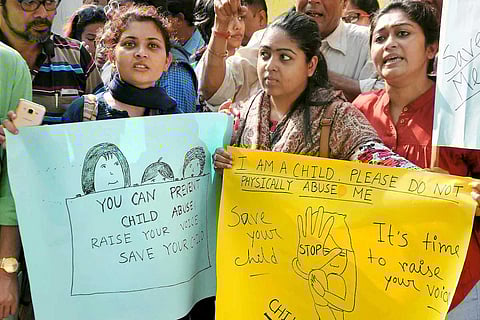 YOU CAN PREVENT
CHILD ABUSE
RAISE YOUR VOICE
SAVE YOUR CHILD
I AM A CHILD, PLEASE DO NOT
PHYSICALLY ABUSE ME
Save
your
child
STOP
It's time
to raise
your voice
Save
Me